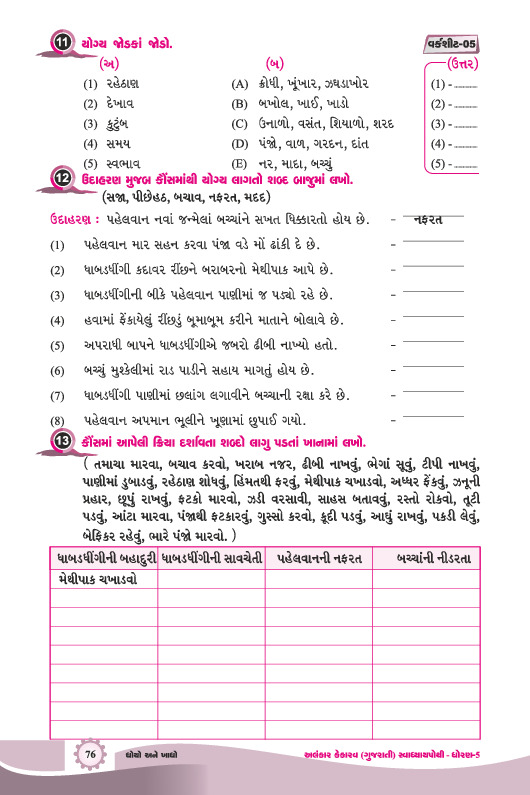 11 યોગ્ય જોડકાં જોડો.
વર્કશીટ-05
(અ) (બ) (ઉત્તર)
(1) રહેઠાણ (A) ક્રોધી, ખૂંખાર, ઝઘડાખોર (1) - ............
(2) દેખાવ (B) બખોલ, ખાઈ, ખાડો (2) - ............
(3) કુટુંબ (C) ઉનાળો, વસંત, શિયાળો, શરદ (3) - ............
(4) સમય (D) પંજો, વાળ, ગરદન, દાંત (4) - ............
(5) સ્વભાવ (E) નર, માદા, બચ્ચું (5) - ............
12 ઉદાહરણ મુજબ કૌંસમાંથી યોગ્ય લાગતો શબ્દ બાજુમાં લખો.
(સજા, પીછેહઠ, બચાવ, નફરત, મદદ)
ઉદાહરણ : પહેલવાન નવાં જન્મેલાં બચ્ચાંને સખત ધિક્કારતો હોય છે. - નફરત
(1) પહેલવાન માર સહન કરવા પંજા વડે મોં ઢાંકી દે છે. -
(2) ધાબડધીંગી કદાવર રીંછને બરાબરનો મેથીપાક આપે છે. -
(3) ધાબડધીંગીની બીકે પહેલવાન પાણીમાં જ પડ્યો રહે છે. -
(4) હવામાં ફેંકાયેલું રીંછડું બૂમાબૂમ કરીને માતાને બોલાવે છે. -
(5) અપરાધી બાપને ધાબડધીંગીએ જબરો ઢીબી નાખ્યો હતો. -
(6) બચ્ચું મુશ્કેલીમાં રાડ પાડીને સહાય માગતું હોય છે. -
(7) ધાબડધીંગી પાણીમાં છલાંગ લગાવીને બચ્ચાની રક્ષા કરે છે. -
(8) પહેલવાન અપમાન ભૂલીને ખૂણામાં છુપાઈ ગયો. -
13 કૌંસમાં આપેલી ક્રિયા દર્શાવતા શબ્દો લાગુ પડતાં ખાનામાં લખો.
( તમાચા મારવા, બચાવ કરવો, ખરાબ નજર, ઢીબી નાખવું, ભેગાં સૂવું, ટીપી નાખવું,
પાણીમાં ડુબાડવું, રહેઠાણ શોધવું, હિંમતથી ફરવું, મેથીપાક ચખાડવો, અધ્ધર ફેંકવું, ઝનૂની
પ્રહાર, છૂપું રાખવું, ફટકો મારવો, ઝડી વરસાવી, સાહસ બતાવવું, રસ્તો રોકવો, તૂટી
પડવું, આંટા મારવા, પંજાથી ફટકારવું, ગુસ્સો કરવો, કૂદી પડવું, આઘું રાખવું, પકડી લેવું,
બેફિકર રહેવું, ભારે પંજો મારવો. )
ધાબડધીંગીની બહાદુરી ધાબડધીંગીની સાવચેતી પહેલવાનની નફરત બચ્ચાંની નીડરતા
મેથીપાક ચખાડવો
76 ધોયો અને ખાધો અલંકાર કેકારવ (ગુજરાતી) સ્વાધ્યાયપોથી - ધોરણ-5